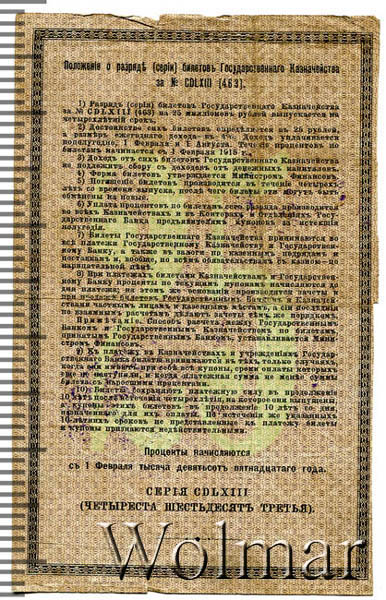 Положеніе о разрядѣ (серіи) билетовъ Государственнаго Казначейства
за № CDLXIII (463).
1) Разрядъ (серія) билетовъ Государственнаго Казначейства
за № CDLXIII (463) на 25 милліоновъ рублей выпускается на
четырехлѣтній срокъ.
2) Достоинство сихъ билетовъ опредѣляется въ 25 рублей,
а размѣръ ежегоднаго дохода въ 4%. Доходъ уплачивается
полугодно, 1 Февраля и 1 Августа. Теченіе процентовъ по
билетамъ начинается съ 1 Февраля 1915 г.
3) Доходъ отъ сихъ билетовъ Государственнаго Казначейства
не подлежитъ сбору съ доходовъ отъ денежныхъ капиталовъ.
4) Форма билетовъ утверждается Министромъ Финансовъ.
5) Погашеніе билетовъ производится въ теченіе четырехъ
лѣтъ со времени выпуска, послѣ чего билеты эти могутъ быть
обмѣнены на новые.
6) Уплата процентовъ по билетамъ сего разряда производится
во всѣхъ Казначействахъ и въ Конторахъ и Отдѣленіяхъ Государственнаго
Банка предъявителямъ купоновъ за истекшія
полугодія.
7) Билеты Государственнаго Казначейства принимаются во
всѣ платежи Государственному Казначейству и Государственному
Банку, а также въ залоги по казеннымъ подрядамъ и
поставкамъ и вообще по всѣмъ обязательствамъ съ казною
8) При платежахъ билетами Казначействамъ и Государственному
Банку проценты по текущимъ купонамъ начисляются до
дня платежа; на этомъ же основаніи производятся зачеты и
при продажѣ билетовъ Государственнымъ Банкомъ и Казначействами
частнымъ лицамъ и казеннымъ мѣстамъ, а сіи послѣднія
по взаимнымъ расчетамъ дѣлаютъ зачеты тѣмъ же порядкомъ.
Примѣчаніе. Способъ расчета между Государственнымъ
Банкомъ и Государственнымъ Казначействомъ по билетамъ,
принятымъ Государственнымъ Банкомъ, устанавливается Министромъ
Финансовъ.
9) Къ платежу въ Казначействахъ и учрежденіяхъ Государственнаго
Банка билеты принимаются въ тѣхъ только случаяхъ,
когда они имѣютъ при себѣ всѣ купоны, сроки оплаты которыхъ
еще не наступили, и когда платежная сумма не менѣе суммы
билета съ наросшими процентами.
10) Билеты сохраняютъ платежную силу въ продолженіе
10 лѣтъ послѣ истеченія четырехлѣтія, на которое они выпущены,
а купоны этихъ билетовъ въ продолженіе 10 лѣтъ со дня,
назначеннаго для ихъ оплаты. По истеченіи же указанныхъ
10-лѣтнихъ сроковъ не представленные къ платежу билеты
и купоны признаются недѣйствительными.
Проценты начисляются
съ 1 Февраля тысяча девятьсотъ пятнадцатаго года.
СЕРІЯ CDLXIII
(ЧЕТЫРЕСТА ШЕСТЬДЕСЯТЪ ТРЕТЬЯ).
Wolmar